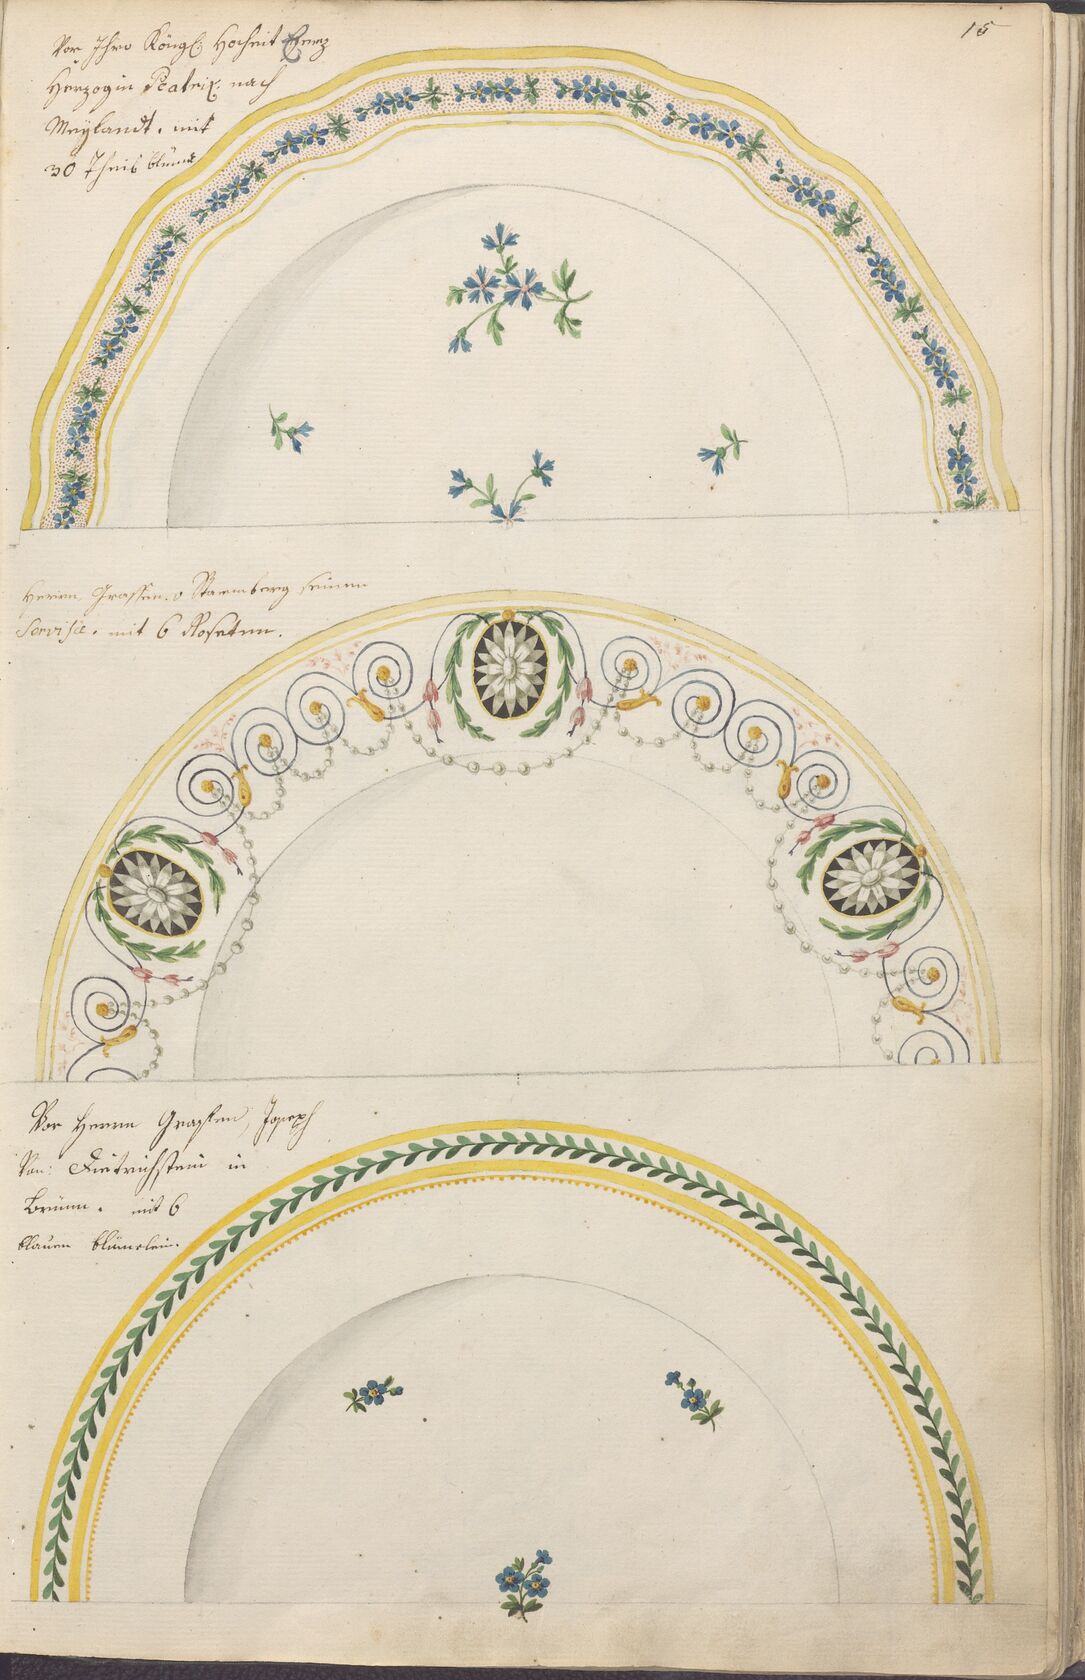 15
Vor Ihro Königl: Hocheit Ertz
Herzogin Beatrix: nach
Meylandt. mit
30 Theis blüml
Herrn, Graffen. v Staremberg seinem
Servise. mit 6 Roseten.
Vor Herrn Graffen, Joseph
Von: Dietrichstein in
Brünn. mit 6
blauen blümelein.